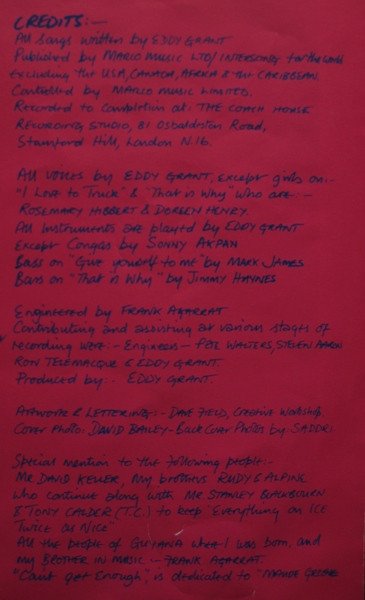 CREDITS:-
All songs written by EDDY GRANT
Published by MARCO MUSIC LTD/INTERSONG for the world
excluding the USA, CANADA, AFRICA & the CARIBBEAN,
Controlled by MARCO MUSIC LIMITED.
Recorded to Completion at: THE COACH HOUSE
RECORDING STUDIO, 81 Osbaldeston Road,
Stamford Hill, London N.16.
All voices by EDDY GRANT, except girls on:-
"I Love to Truck" & "That is Why" who are:-
ROSEMARY HIBBERT & DOREEN HENRY.
All Instruments are played by EDDY GRANT
Except Congas by SONNY AKPAN
Bass on "Give yourself to me" by MARK JAMES
Bass on "That is Why" by JIMMY HAYNES
Engineered by FRANK AGARRAT
Contributing and assisting at various stages of
recording were:- Engineers - PETE WALTERS, STEVEN AARON
RON TELEMACQUE & EDDY GRANT.
Produced by:- EDDY GRANT.
Artwork & LETTERING:- DAVE FIELD, Creative Workshop.
COVER PHOTO: DAVID BAILEY - Back Cover Photos by: SADDRI
Special mention to the following people:-
MR. DAVID KELLER, my brothers RUDY & ALPINE
who continue along with MR. STANLEY
& TONY CALDER (T.C.) to keep Everything on ICE
"TWICE as NICE"
All the people of GUYANA where I was born, and
my BROTHER IN MUSIC - FRANK AGARRAT.
"Can't get Enough" is dedicated to "MAUDE